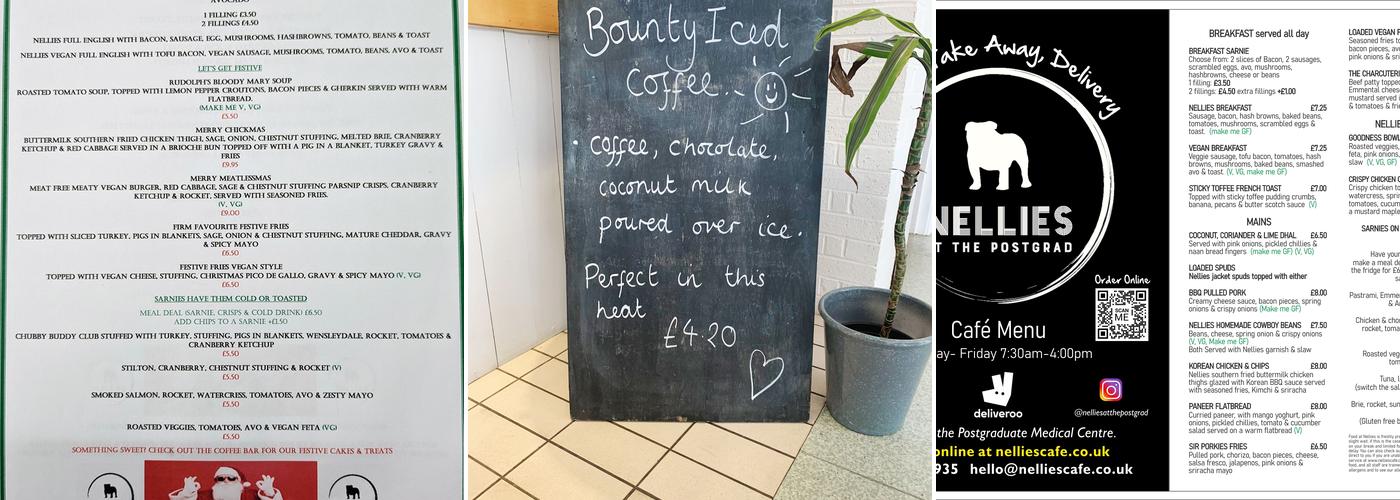 AVOCADO
1 FILLING £3.50
2 FILLINGS £4.50
NELLIES FULL ENGLISH WITH BACON, SAUSAGE, EGG, MUSHROOMS, HASHBROWNS, TOMATO, BEANS & TOAST
NELLIES VEGAN FULL ENGLISH WITH TOFU BACON, VEGAN SAUSAGE, MUSHROOMS, TOMATO, BEANS, AVO & TOAST
LET'S GET FESTIVE
RUDOLPH'S BLOODY MARY SOUP
ROASTED TOMATO SOUP, TOPPED WITH LEMON PEPPER CROUTONS, BACON PIECES & GHERKIN SERVED WITH WARM
FLATBREAD.
(MAKE ME V, VG)
£5.50
MERRY CHICKMAS
BUTTERMILK SOUTHERN FRIED CHICKEN THIGH, SAGE, ONION, CHESTNUT STUFFING, MELTED BRIE, CRANBERRY
KETCHUP & RED CABBAGE SERVED IN A BRIOCHE BUN TOPPED OFF WITH A PIG IN A BLANKET, TURKEY GRAVY &
FRIES
£9.95
MERRY MEATLISSMAS
MEAT FREE MEATY VEGAN BURGER, RED CABBAGE, SAGE & CHESTNUT STUFFING PARSNIP CRISPS, CRANBERRY
KETCHUP & ROCKET, SERVED WITH SEASONED FRIES.
(V, VG)
£9.00
FIRM FAVOURITE FESTIVE FRIES
TOPPED WITH SLICED TURKEY, PIGS IN BLANKETS, SAGE, ONION & CHESTNUT STUFFING, MATURE CHEDDAR, GRAVY
& SPICY MAYO
£6.50
FESTIVE FRIES VEGAN STYLE
TOPPED WITH VEGAN CHEESE, STUFFING, CHRISTMAS PICO DE GALLO, GRAVY & SPICY MAYO (V, VG)
£6.50
SARNIES HAVE THEM COLD OR TOASTED
MEAL DEAL (SARNIE, CRISPS & COLD DRINK) £6.50
ADD CHIPS TO A SARNIE +£1.50
CHUBBY BUDDY CLUB STUFFED WITH TURKEY, STUFFING, PIGS IN BLANKETS, WENSLEYDALE, ROCKET, TOMATOES &
CRANBERRY KETCHUP
£5.50
STILTON, CRANBERRY, CHESTNUT STUFFING & ROCKET (V)
£5.50
SMOKED SALMON, ROCKET, WATERCRESS, TOMATOES, AVO & ZESTY MAYO
£5.50
ROASTED VEGGIES, TOMATOES, AVO & VEGAN FETA (VG)
£5.50
SOMETHING SWEET? CHECK OUT THE COFFEE BAR FOR OUR FESTIVE CAKES & TREATS
Bounty Iced
Coffee..
coffee, chocolate,
coconut milk
poured over ice.
Perfect in this
heat
£4.20
ake Away, Delivery
NELLIES
T THE POSTGRAD
Order Online
SCAN ME
Café Menu
ay- Friday 7:30am-4:00pm
deliveroo
@nelliesatthepostgrad
the Postgraduate Medical Centre.
online at nelliescafe.co.uk
935 hello@nelliescafe.co.uk
BREAKFAST served all day
BREAKFAST SARNIE
Choose from: 2 slices of Bacon, 2 sausages,
scrambled eggs, avo, mushrooms,
hashbrowns, cheese or beans
1 filling: £3.50
2 fillings: £4.50 extra fillings +£1.00
NELLIES BREAKFAST £7.25
Sausage, bacon, hash browns, baked beans,
tomatoes, mushrooms, scrambled eggs &
toast. (make me GF)
VEGAN BREAKFAST £7.25
Veggie sausage, tofu bacon, tomatoes, hash
browns, mushrooms, baked beans, smashed
avo & toast (V, VG, make me GF)
STICKY TOFFEE FRENCH TOAST £7.00
Topped with sticky toffee pudding crumbs,
banana, pecans & butter scotch sauce (V)
MAINS
COCONUT, CORIANDER & LIME DHAL £6.50
Served with pink onions, pickled chillies &
naan bread fingers (make me GF) (V, VG)
LOADED SPUDS
Nellies jacket spuds topped with either
BBQ PULLED PORK £8.00
Creamy cheese sauce, bacon pieces, spring
onions & crispy onions (Make me GF)
NELLIES HOMEMADE COWBOY BEANS £7.50
Beans, cheese, spring onion & crispy onions
(V, VG, Make me GF)
Both Served with Nellies garnish & slaw
KOREAN CHICKEN & CHIPS £8.00
Nellies southern fried buttermilk chicken
thighs glazed with Korean BBQ sauce served
with seasoned fries, Kimchi & sriracha
PANEER FLATBREAD £8.00
Curried paneer, with mango yoghurt, pink
onions, pickled chillies, tomato & cucumber
salad served on a warm flatbread (V)
SIR PORKIES FRIES £6.50
Pulled pork, chorizo, bacon pieces, cheese,
salsa fresco, jalapenos, pink onions &
sriracha mayo
LOADED VEGAN F
Seasoned fries to
bacon pieces, av
pink onions & sri
THE CHARCUTERI
Beef patty topped
Emmental cheese
mustard served i
& tomatoes & fri
NELLIE
GOODNESS BOWL
Roasted veggies,
feta, pink onions,
slaw (V, VG, GF)
CRISPY CHICKEN C
Crispy chicken to
watercress, sprin
tomatoes, cucum
a mustard maple
SARNIES ON
Have your
make a meal de
the fridge for £6
Pastrami, Emme
& A
Chicken & cho
rocket, toma
Roasted veg
tom
Tuna, l
(switch the sal
Brie, rocket, sun
(Gluten free b